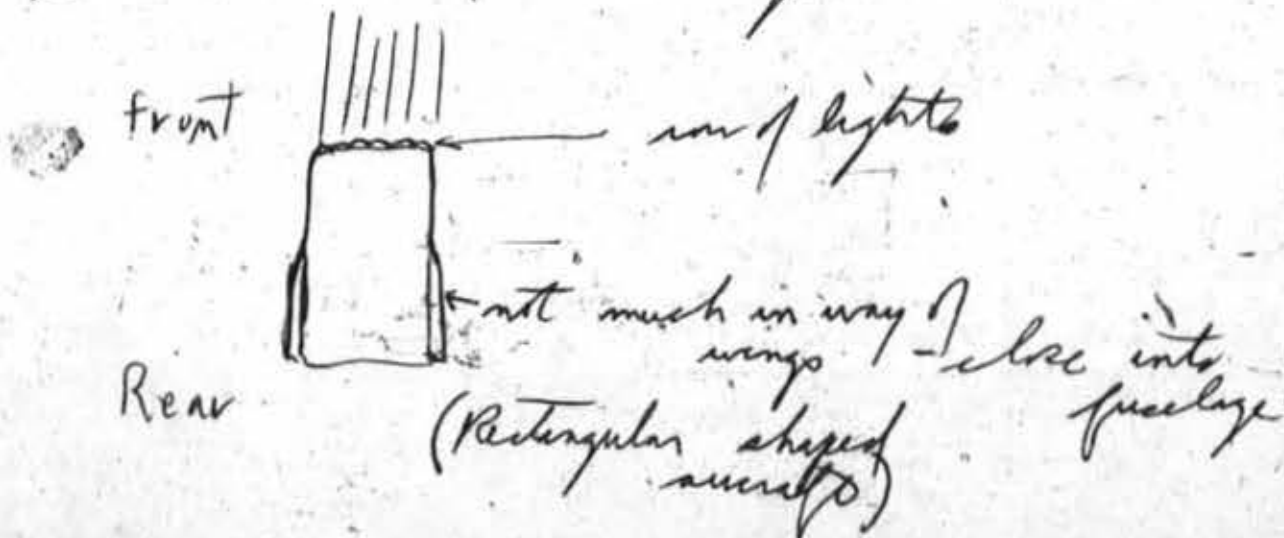 Front
row of lights
← not much in way of
wings - close into
fuselage
Rear
(Rectangular shaped
aircraft)